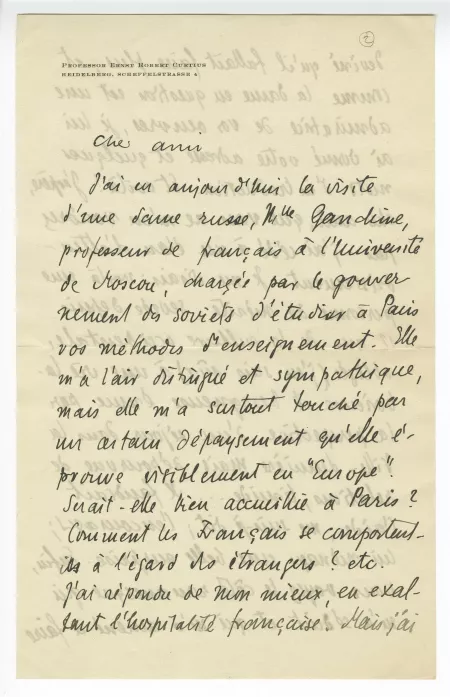 2
PROFESSOR ERNST ROBERT CURTIUS
HEIDELBERG, SCHEFFELSTRASSE 4
Cher ami
J'ai eu aujourd'hui la visite
d'une dame russe, Mlle Gandine,
professeur de français à l'Université
de Moscou, chargée par le gouver
nement des soviets d'étudier à Paris
vos méthodes d'enseignement. Elle
m'a l'air distingué et sympathique,
mais elle m'a surtout touché par
un certain dépaysement qu'elle é-
prouve visiblement en "Europe".
Serait-elle bien accueillie à Paris?
Comment les Français se comportent-
ils à l'égard des étrangers? etc.
J'ai répondu de mon mieux, en exal-
tant l'hospitalité française. Mais j'ai